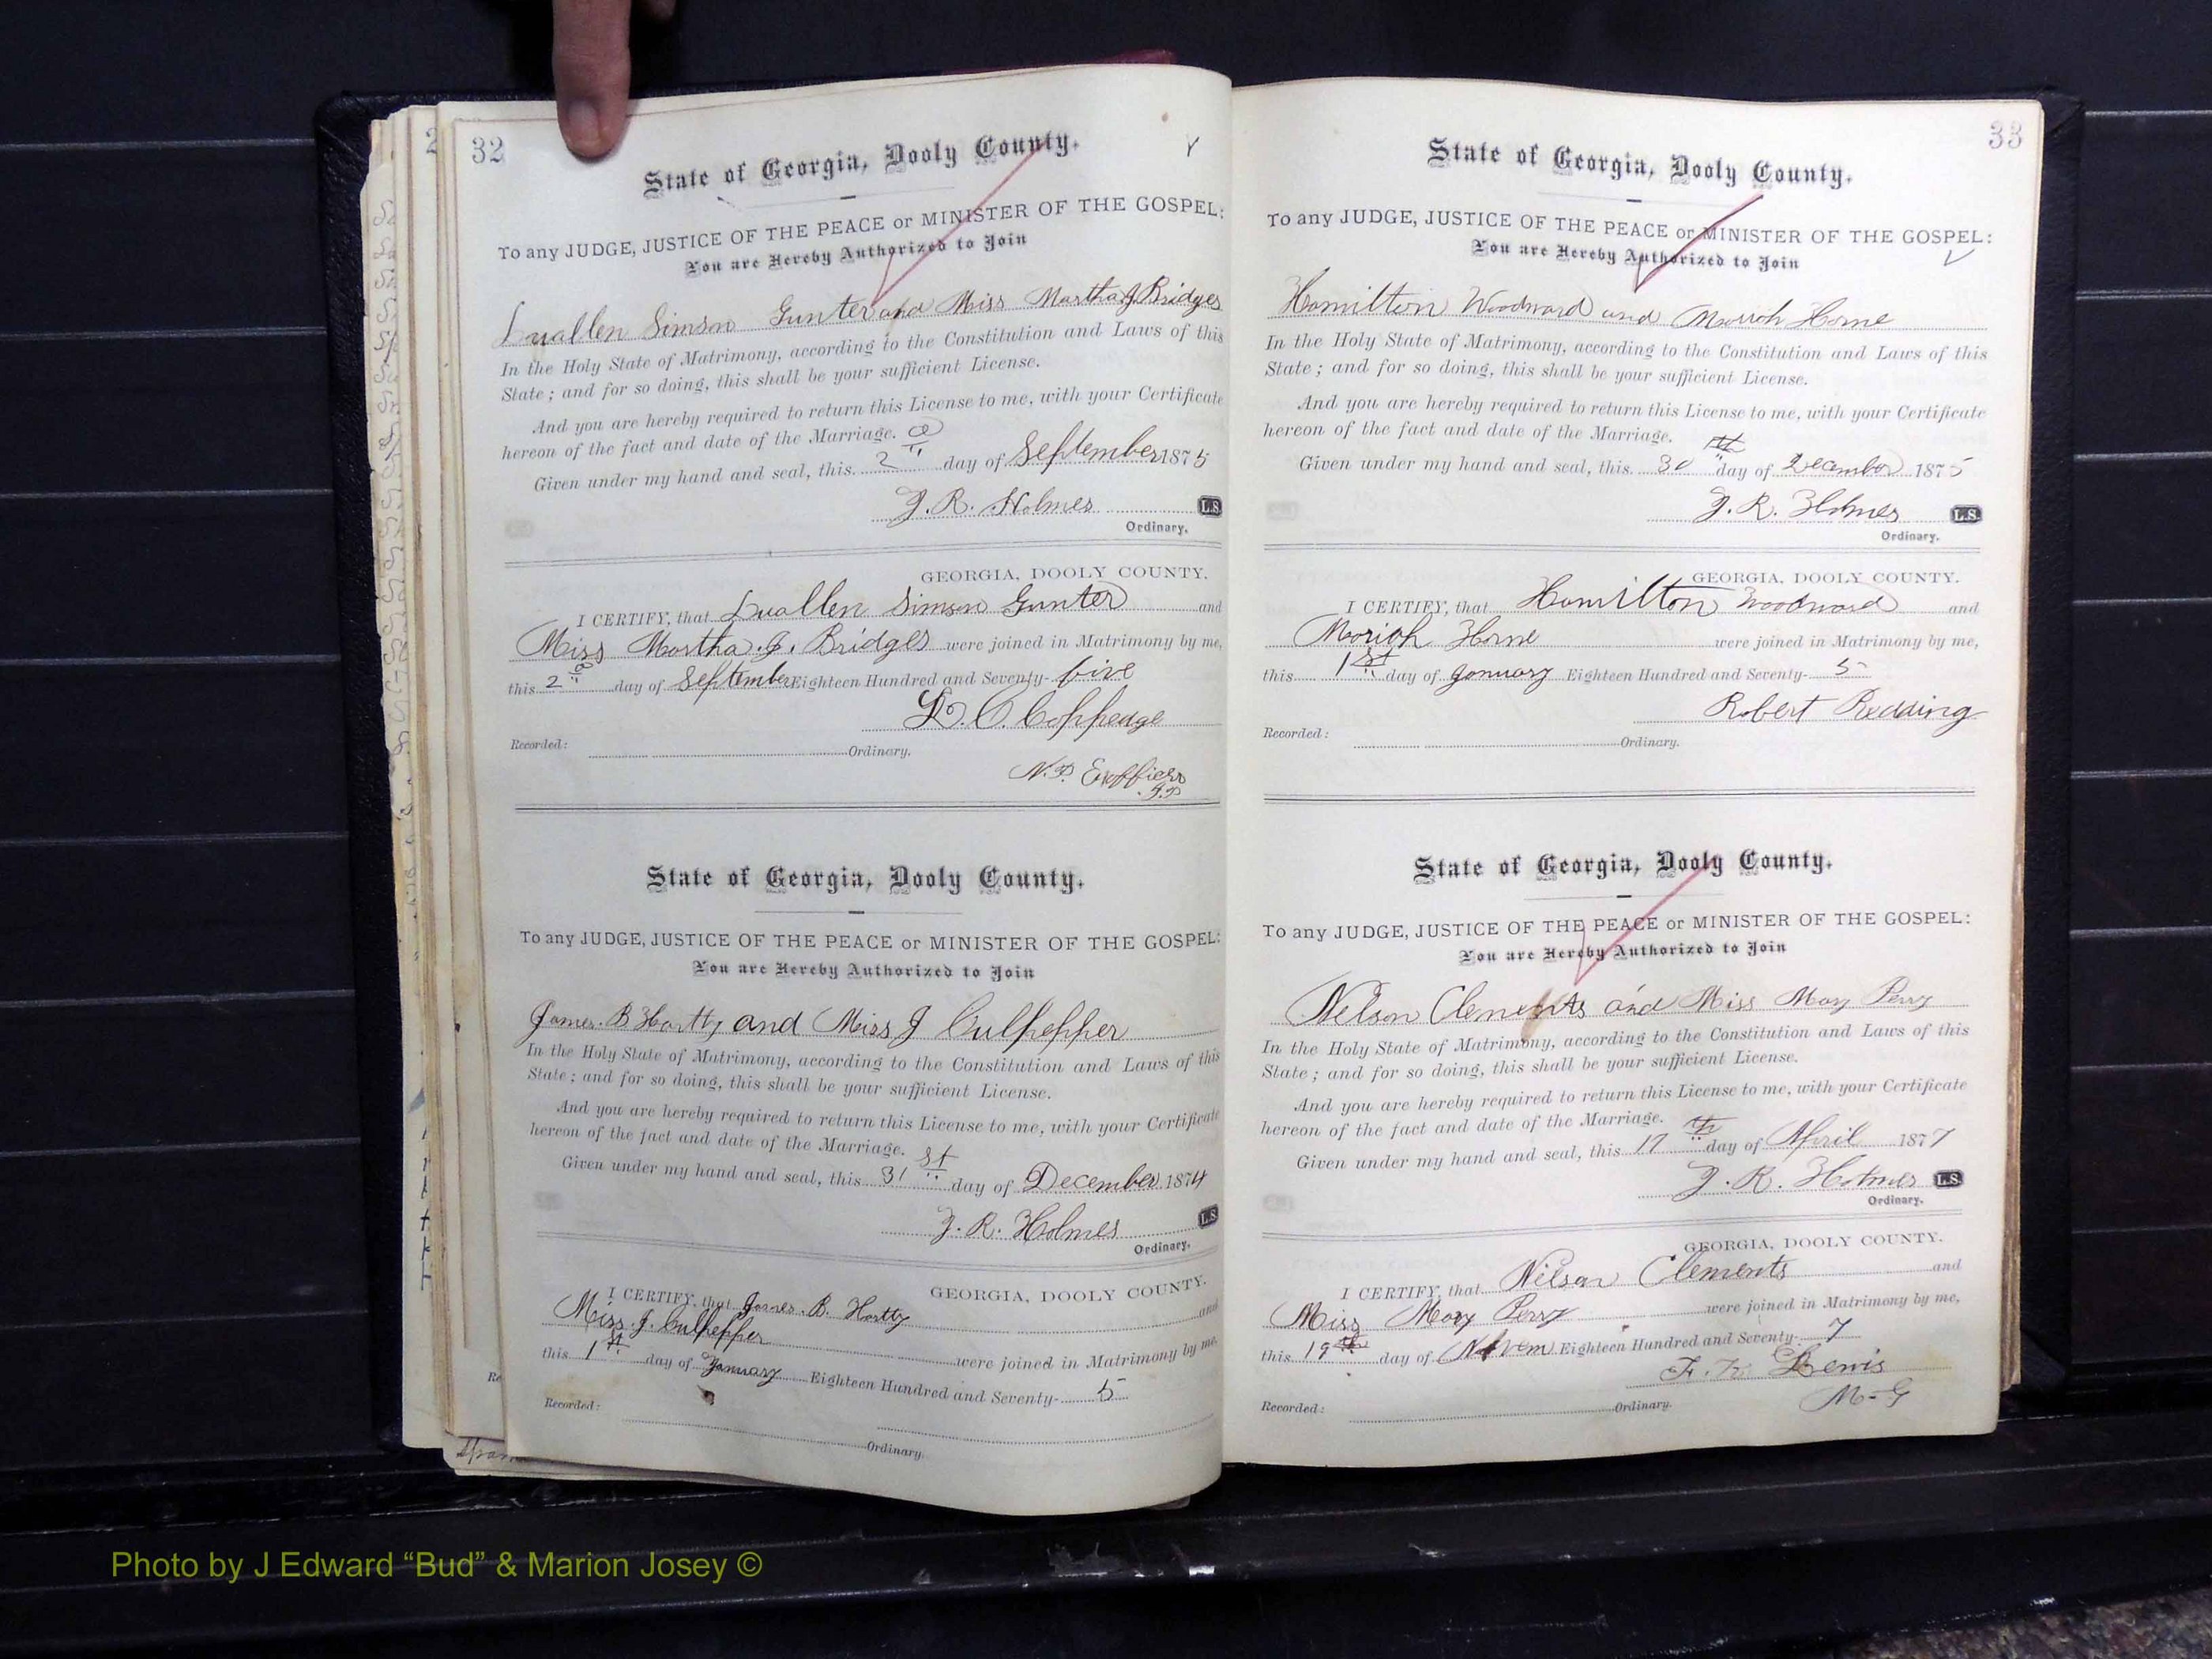 32
State of Georgia, Dooly County.
To any JUDGE, JUSTICE OF THE PEACE or MINISTER OF THE GOSPEL:
You are Hereby Authorized to Join
Luallen Simson Gunter and Miss Martha J Bridges
In the Holy State of Matrimony, according to the Constitution and Laws of this
State; and for so doing, this shall be your sufficient License.
And you are hereby required to return this License to me, with your Certificate
hereon of the fact and date of the Marriage.
Given under my hand and seal, this 2d day of September 1875
J. R. Holmes L.S.
Ordinary.
GEORGIA, DOOLY COUNTY.
I CERTIFY, that Luallen Simson Gunter and
Miss Martha J. Bridges were joined in Matrimony by me,
this 2d day of September Eighteen Hundred and Seventy-five
D. C. Coppedge
Recorded: Ordinary.
N.P. Exofficio
J.P
State of Georgia, Dooly County.
To any JUDGE, JUSTICE OF THE PEACE or MINISTER OF THE GOSPEL:
You are Hereby Authorized to Join
James. B Hartty and Miss J Culpepper
In the Holy State of Matrimony, according to the Constitution and Laws of this
State; and for so doing, this shall be your sufficient License.
And you are hereby required to return this License to me, with your Certificate
hereon of the fact and date of the Marriage.
Given under my hand and seal, this 31st day of December 1874
J. R. Holmes L.S
Ordinary.
GEORGIA, DOOLY COUNTY.
I CERTIFY, that James. B. Hartty and
Miss. J. Culpepper were joined in Matrimony by me,
this 1st day of January Eighteen Hundred and Seventy-5
Recorded:
Ordinary.
33
State of Georgia, Dooly County.
To any JUDGE, JUSTICE OF THE PEACE or MINISTER OF THE GOSPEL:
You are Hereby Authorized to Join
Hamilton Woodward and Marioh Horne
In the Holy State of Matrimony, according to the Constitution and Laws of this
State; and for so doing, this shall be your sufficient License.
And you are hereby required to return this License to me, with your Certificate
hereon of the fact and date of the Marriage.
Given under my hand and seal, this 30th day of December 1875
J. R. Holmes L.S.
Ordinary.
GEORGIA, DOOLY COUNTY.
I CERTIFY, that Hamilton Woodward and
Marioh Horne were joined in Matrimony by me,
this 1st day of January Eighteen Hundred and Seventy-5
Robert Redding
Recorded: Ordinary.
State of Georgia, Dooly County.
To any JUDGE, JUSTICE OF THE PEACE or MINISTER OF THE GOSPEL:
You are Hereby Authorized to Join
Nelson Clements and Miss Mary Perry
In the Holy State of Matrimony, according to the Constitution and Laws of this
State; and for so doing, this shall be your sufficient License.
And you are hereby required to return this License to me, with your Certificate
hereon of the fact and date of the Marriage.
Given under my hand and seal, this 17th day of April 1877
J. R. Holmes L.S.
Ordinary.
GEORGIA, DOOLY COUNTY.
I CERTIFY, that Nelson Clements and
Miss Mary Perry were joined in Matrimony by me,
this 19th day of Eighteen Hundred and Seventy-7
Lewis
Recorded: Ordinary. M-G
Photo by J Edward “Bud” & Marion Josey ©